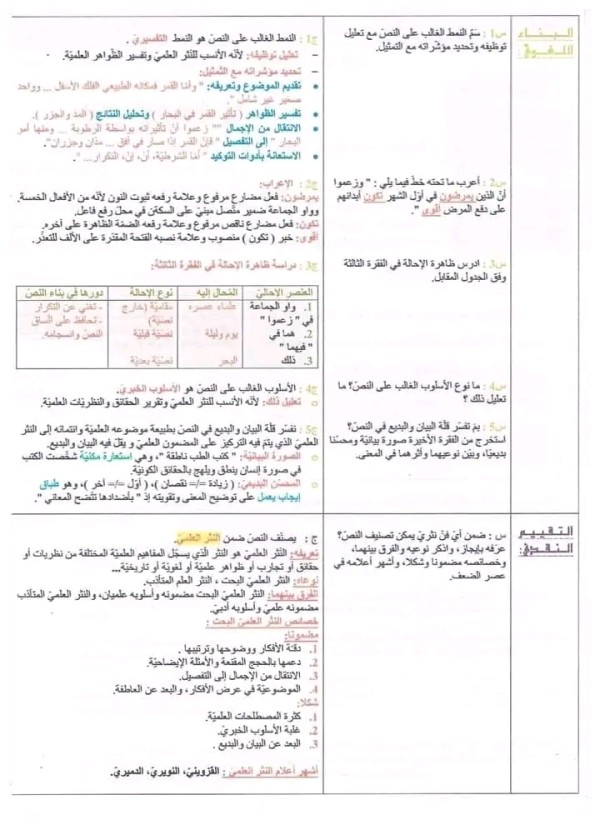 البناء
اللغوي:
س1: سمّ النمط الغالب على النصّ مع تعليل
توظيفه وتحديد مؤشّراته مع التمثيل.
ج1: النمط الغالب على النصّ هو النمط التفسيريّ.
– تعليل توظيفه: لأنّه الأنسب للنثر العلميّ وتفسير الظواهر العلميّة.
– تحديد مؤشّراته مع التمثيل:
• تقديم الموضوع وتعريفه: " وأمّا القمر فمكانه الطبيعي الفلك الأسفل ... وواحد
صغير غير شامل "
• تفسير الظواهر ( تأثير القمر في البحار ) وتحليل النتائج ( المد والجزر ).
• الانتقال من الإجمال "" زعموا أنّ تأثيراته بواسطة الرطوبة ... ومنها أمر
البحار " إلى التفصيل " فإنّ القمر إذا صار في أفق ... مدّان وجزران".
• الاستعانة بأدوات التوكيد " أمّا الشرطيّة، أن، إنّ، التكرار...".
س2: أعرب ما تحته خطّ فيما يلي : " وزعموا
أنّ الذين يمرضون في أوّل الشهر تكون أبدانهم
على دفع المرض أقوى ".
ج2: الإعراب:
يمرضون: فعل مضارع مرفوع وعلامة رفعه ثبوت النون لأنّه من الأفعال الخمسة.
وواو الجماعة ضمير متّصل مبنيّ على السكون في محلّ رفع فاعل.
تكون: فعل مضارع ناقص مرفوع وعلامة رفعه الضمّة الظاهرة على آخره.
أقوى: خبر ( تكون ) منصوب وعلامة نصبه الفتحة المقدّرة على الألف للتعذّر.
س3: ادرس ظاهرة الإحالة في الفقرة الثالثة
وفق الجدول المقابل.
ج3: دراسة ظاهرة الإحالة في الفقرة الثالثة:
العنصر الإحاليّ المُحال إليه نوع الإحالة دورها في بناء النصّ
1. واو الجماعة علماء عصره مقاميّة (خارج - تغني عن التكرار
في " زعموا " نصيّة) - تحافظ على اتّساق
2. هما في يوم وليلة نصيّة قبليّة النصّ وانسجامه.
" فيهما "
3. ذلك البحر نصيّة بعديّة
س4: ما نوع الأسلوب الغالب على النصّ؟ ما
تعليل ذلك ؟
ج4: الأسلوب الغالب على النصّ هو الأسلوب الخبريّ.
○ تعليل ذلك: لأنّه الأنسب للنثر العلميّ وتقرير الحقائق والنظريّات العلميّة.
س5: بمَ تفسّر قلّة البيان والبديع في النصّ؟
استخرج من الفقرة الأخيرة صورة بيانيّة ومحسّنا
بديعيّا، وبيّن نوعيهما وأثرهما في المعنى.
ج5: نفسّر قلّة البيان والبديع في النصّ بطبيعة موضوعه العلميّة وانتمائه إلى النثر
العلميّ الذي يتمّ فيه التركيز على المضمون العلميّ و يقلّ فيه البيان والبديع.
○ الصورة البيانيّة: " كتب الطب ناطقة "، وهي استعارة مكنيّة شخّصت الكتب
في صورة إنسان ينطق ويلهج بالحقائق الكونيّة.
○ المحسّن البديعيّ: ( زيادة =/= نقصان )، ( أوّل =/= آخر )، وهو طباق
إيجاب يعمل على توضيح المعنى وتقويته إذ " بأضدادها تتّضح المعاني ".
التقييم
النقدي:
س : ضمن أيّ فنّ نثريّ يمكن تصنيف النصّ؟
عرّفه بإيجاز، واذكر نوعيه والفرق بينهما،
وخصائصه مضمونا وشكلا، وأشهر أعلامه في
عصر الضعف.
ج : يصنّف النصّ ضمن النثر العلميّ.
تعريفه: النّثر العلميّ هو النثر الذي يسجّل المفاهيم العلميّة المختلفة من نظريات أو
حقائق أو تجارب أو ظواهر علميّة أو لغويّة أو تاريخيّة...
نوعاه: النثر العلميّ البحت ، النثر العلم المتأدّب.
الفرق بينهما: النثر العلميّ البحت مضمونه وأسلوبه علميان، والنثر العلميّ المتأدّب
مضمونه علميّ وأسلوبه أدبيّ.
خصائص النّثر العلميّ البحت :
مضمونا:
1. دقّة الأفكار ووضوحها وترتيبها .
2. دعمها بالحجج المقنعة والأمثلة الإيضاحيّة.
3. الانتقال من الإجمال إلى التفصيل.
4. الموضوعيّة في عرض الأفكار، والبعد عن العاطفة.
شكلا:
1. كثرة المصطلحات العلميّة.
2. غلبة الأسلوب الخبريّ.
3. البعد عن البيان والبديع .
أشهر أعلام النّثر العلميّ : القزوينيّ، النويريّ، الدميريّ.